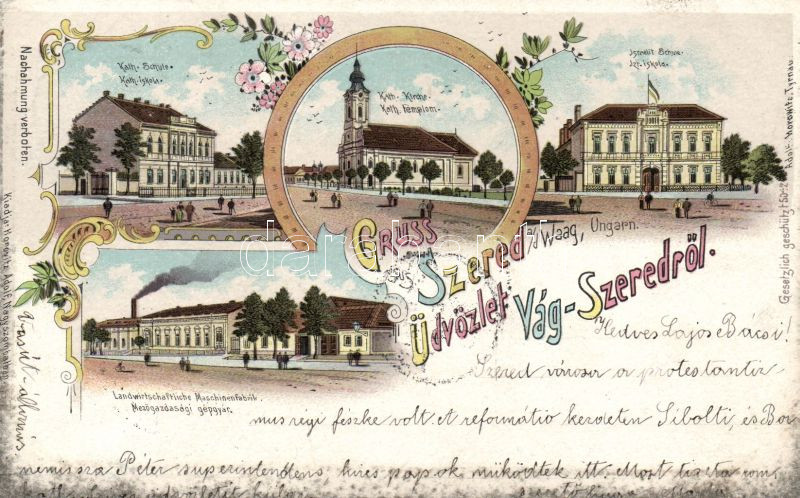 Nachahmung verboten.
Kath. Schule.
Kath. iskola.
Kath. Kirche.
Kath. Templom.
Israelit Schule.
Izr. Iskola.
Adolf Horowitz, Tyrnau.
Gesetzlich geschützt
Gruss aus
Szered a/d Waag, Ungarn.
Üdvözlet Vág-Szeredről.
Landwirtschaftliche Maschinenfabrik.
Mezőgazdasági gépgyár.
Kiadja Horovitz Adolf Nagyszombatban
Vasút-állomás
Kedves Lajos Bácsi!
Szered városa a protestantiz
mus régi fészke volt et reformátio kezdetén Sibolti, és Bor
nemissza Péter superintendens híres papok működtek itt. Most tiszta rom.